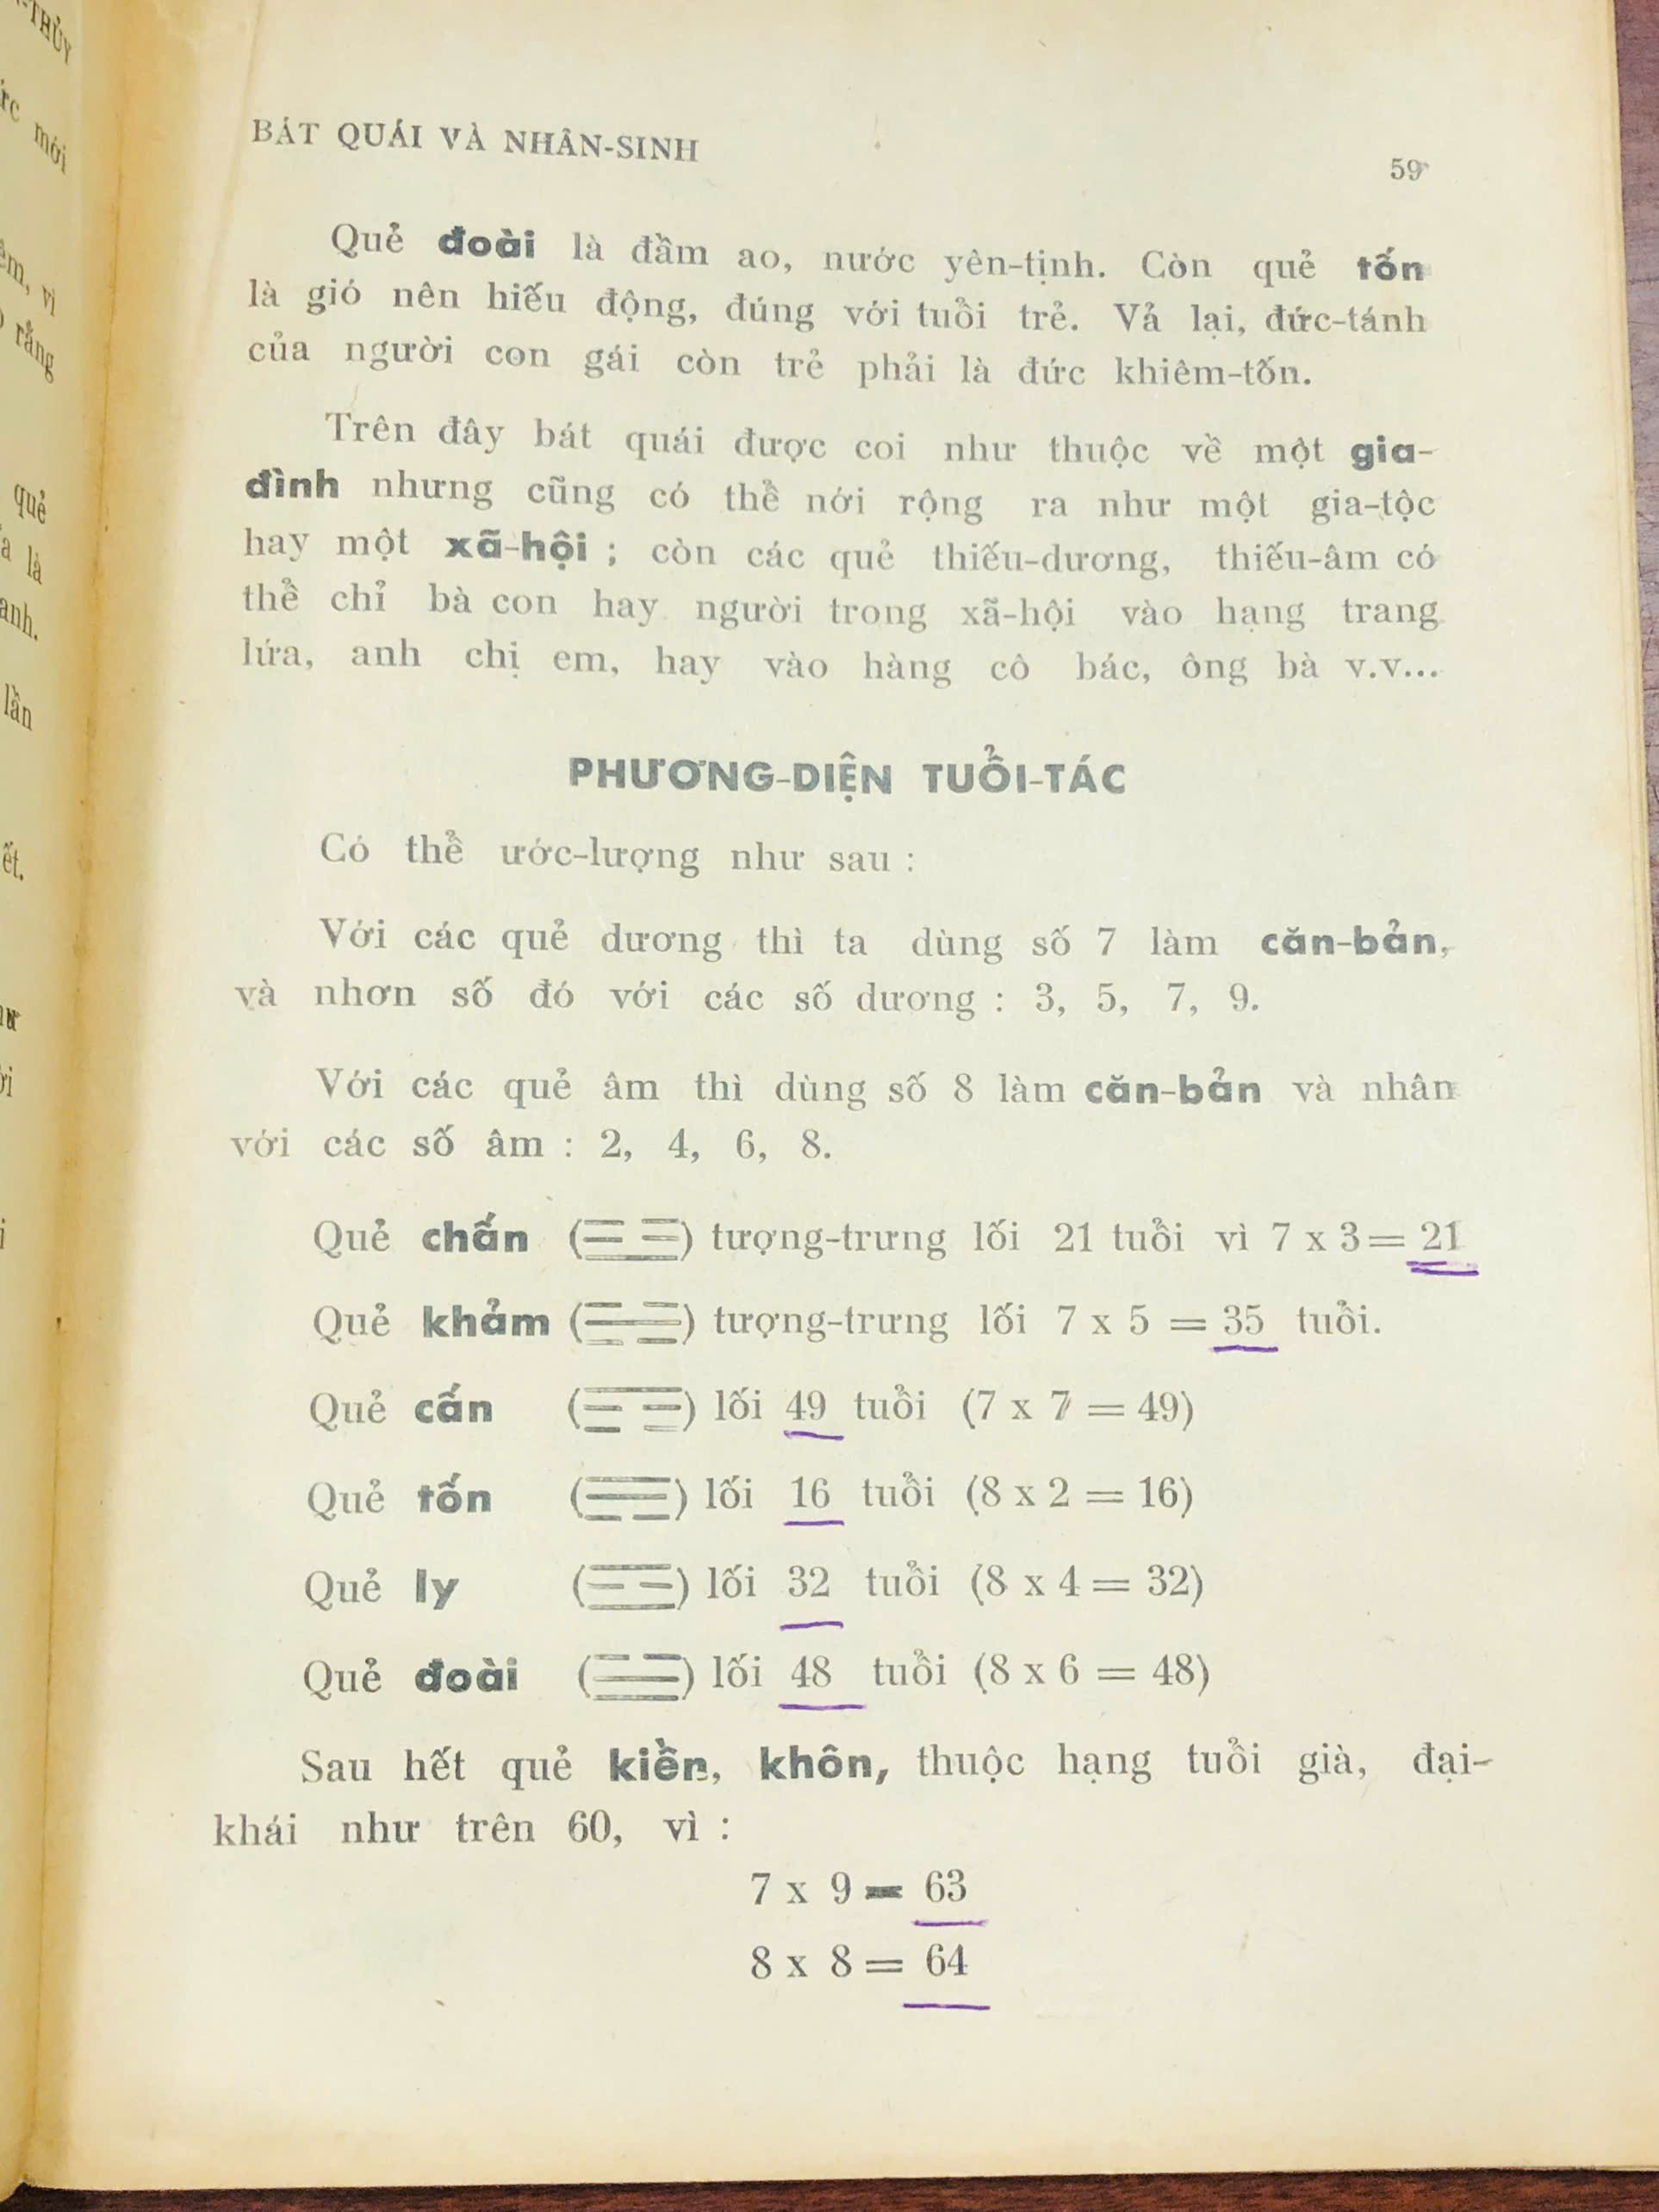 BÁT QUÁI VÀ NHÂN-SINH
59
Quẻ đoài là đầm ao, nước yên-tịnh. Còn quẻ tốn
là gió nên hiếu động, đúng với tuổi trẻ. Vả lại, đức-tánh
của người con gái còn trẻ phải là đức khiêm-tốn.
Trên đây bát quái được coi như thuộc về một gia-
đình nhưng cũng có thể nới rộng ra như một gia-tộc
hay một xã-hội ; còn các quẻ thiếu-dương, thiếu-âm có
thể chỉ bà con hay người trong xã-hội vào hạng trang
lứa, anh chị em, hay vào hàng cô bác, ông bà v.v...
PHƯƠNG-DIỆN TUỔI-TÁC
Có thể ước-lượng như sau :
Với các quẻ dương thì ta dùng số 7 làm căn-bản,
và nhơn số đó với các số dương : 3, 5, 7, 9.
Với các quẻ âm thì dùng số 8 làm căn-bản và nhân
với các số âm : 2, 4, 6, 8.
Quẻ chấn (☳) tượng-trưng lối 21 tuổi vì 7 x 3 = 21
Quẻ khảm (☵) tượng-trưng lối 7 x 5 = 35 tuổi.
Quẻ cấn (☶) lối 49 tuổi (7 x 7 = 49)
Quẻ tốn (☴) lối 16 tuổi (8 x 2 = 16)
Quẻ ly (☲) lối 32 tuổi (8 x 4 = 32)
Quẻ đoài (☱) lối 48 tuổi (8 x 6 = 48)
Sau hết quẻ kiền, khôn, thuộc hạng tuổi già, đại-
khái như trên 60, vì :
7 x 9 = 63
8 x 8 = 64